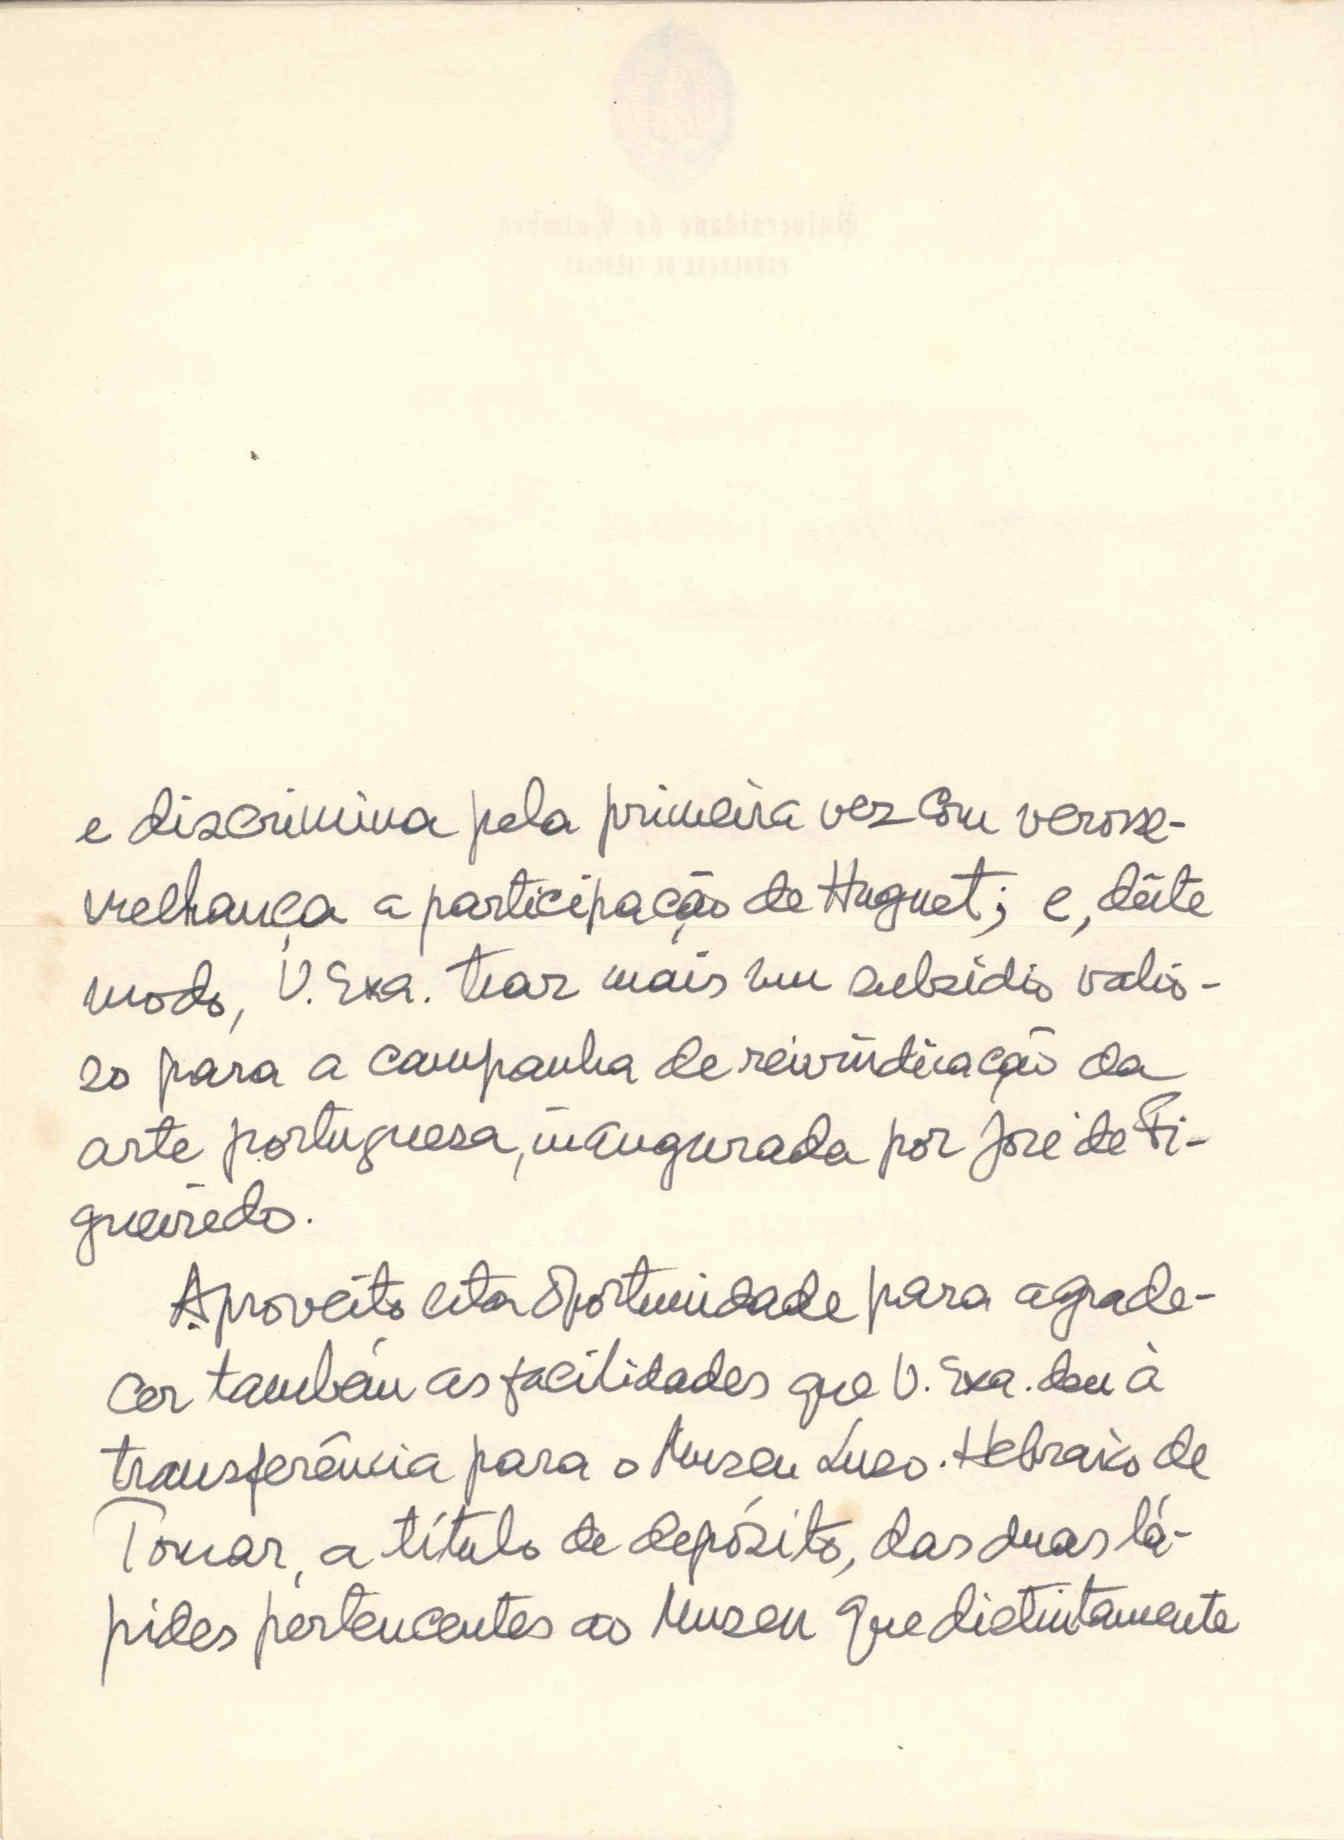 e discrimina pela primeira vez com verosse-
melhança a participação de Huguet; e, dêste
modo, V. Exa. traz mais um subsídio valio-
so para a campanha de reivindicação da
arte portuguesa, inaugurada por José de Fi-
gueirêdo.
Aproveito esta oportunidade para agrade-
cer também as facilidades que V. Exa. deu à
transferência para o Museu Luso-Hebraico de
Tomar, a título de depósito, das duas lá-
pides pertencentes ao Museu que distintamente